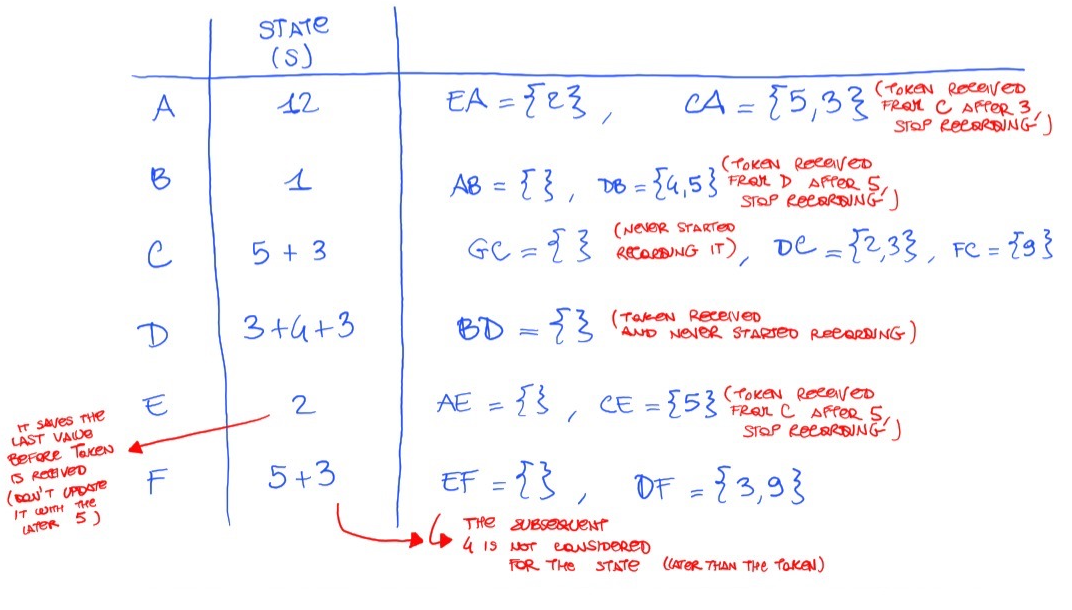 STATE
(S)
A 12 EA = {2}, CA = {5,3} (TOKEN RECEIVED
FROM C AFTER 3,
STOP RECORDING)
B 1 AB = { }, DB = {4,5} (TOKEN RECEIVED
FROM D AFTER 5,
STOP RECORDING)
C 5 + 3 GC = { } (NEVER STARTED
RECORDING IT), DC = {2,3}, FC = {9}
D 3+4+3 BD = { } (TOKEN RECEIVED
AND NEVER STARTED RECORDING)
E 2 AE = { }, CE = {5} (TOKEN RECEIVED
FROM C AFTER 5,
STOP RECORDING)
IT SAVES THE
LAST VALUE
BEFORE TOKEN
IS RECEIVED
(DON'T UPDATE
IT WITH THE
LATER 5)
F 5+3 EF = { }, DF = {3,9}
THE SUBSEQUENT
4 IS NOT CONSIDERED
FOR THE STATE (LATER THAN THE TOKEN)